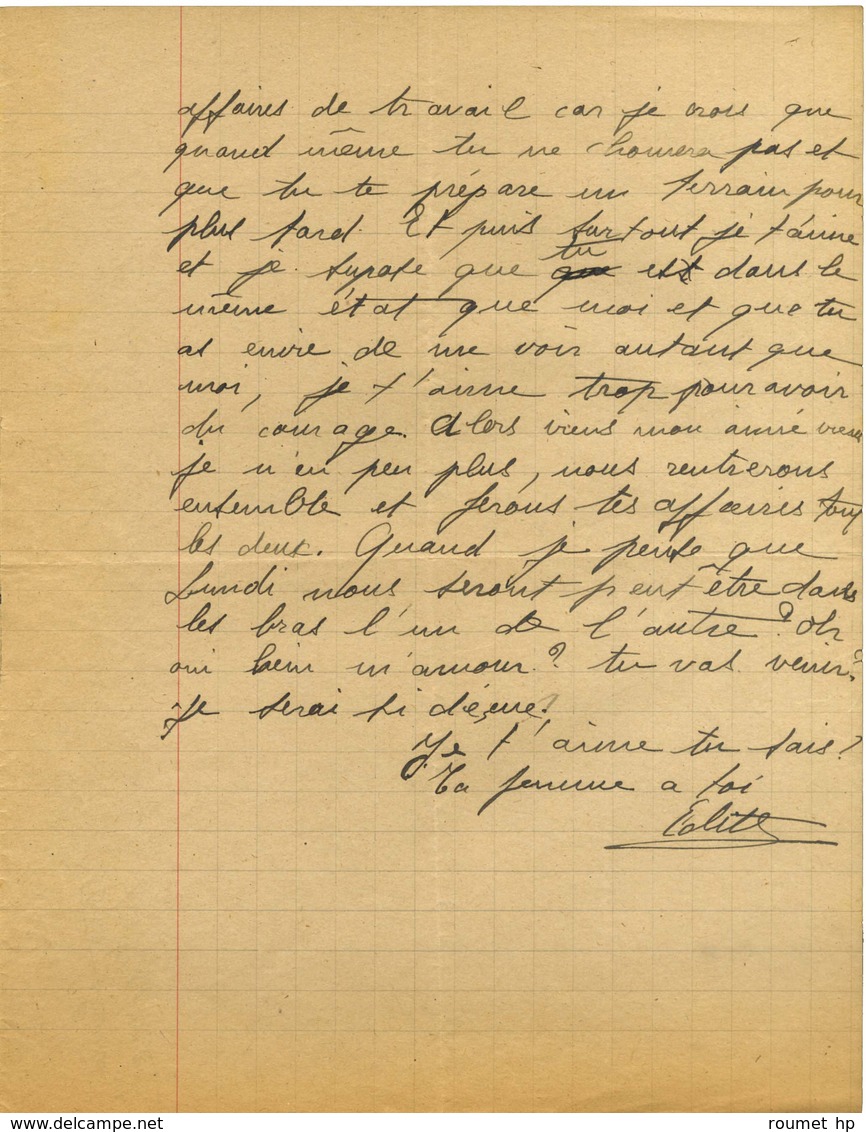 affaires de travail car je crois que
quand même tu ne chomera pas et
que tu te prépare un terrain pour
plus tard. Et puis surtout je t'aime
et je supose que tu est dans le
même état que moi et que tu
as envie de me voir autant que
moi, je t'aime trop pour avoir
du courage. Alors viens mon aimé viens
je n'en peu plus, nous rentrerons
ensemble et ferons tes affaires tous
les deux. Quand je pense que
Lundi nous seront peut être dans
les bras l'un de l'autre? Oh
oui hein m'amour? tu vas venir?
Je serai si
Je t'aime tu sais?
Ta femme a toi
Edith
roumet hp